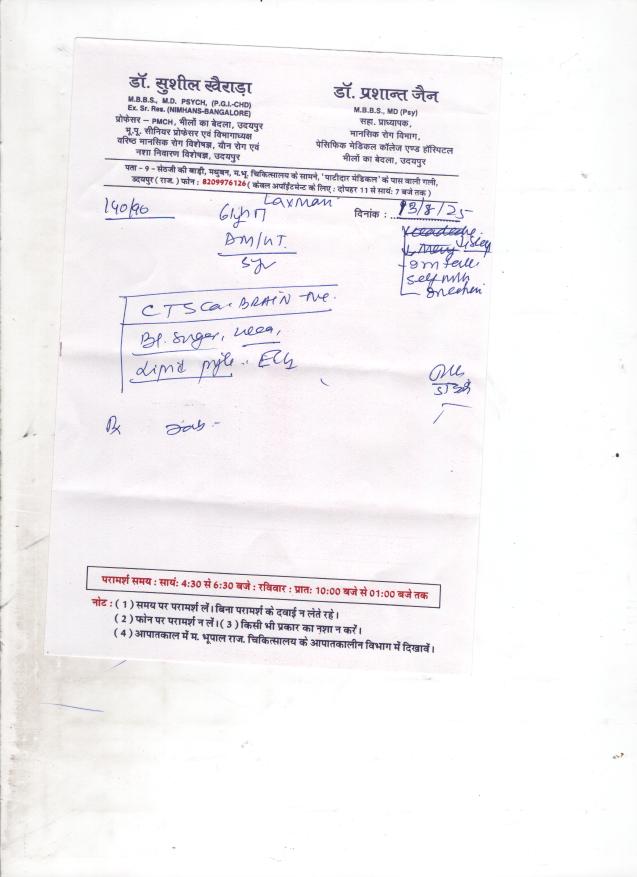 डॉ. सुशील खैराड़ा
M.B.B.S., M.D. PSYCH, (P.G.I.-CHD)
Ex. Sr. Res. (NIMHANS-BANGALORE)
प्रोफेसर – PMCH, भीलों का बेदला, उदयपुर
भू.पू. सीनियर प्रोफेसर एवं विभागाध्यक्ष
वरिष्ठ मानसिक रोग विशेषज्ञ, यौन रोग एवं
नशा निवारण विशेषज्ञ, उदयपुर
डॉ. प्रशान्त जैन
M.B.B.S., MD (Psy)
सहा. प्राध्यापक,
मानसिक रोग विभाग,
पेसिफिक मेडिकल कॉलेज एण्ड हॉस्पिटल
भीलों का बेदला, उदयपुर
पता - 9 - सेठजी की बाड़ी, मधुबन, म.भू. चिकित्सालय के सामने, 'पाटीदार मेडिकल' के पास वाली गली,
उदयपुर ( राज. ) फोन : 8209976126 ( केवल अपॉइंटमेन्ट के लिए : दोपहर 11 से सायं: 7 बजे तक )
140/90
Laxman
दिनांक : 13/8/25
61yr
DM/HT
5yr
Self
CT SCan BRAIN
Bl. Sugar, urea,
Lipid , ECG
Rx
परामर्श समय : सायं: 4:30 से 6:30 बजे : रविवार : प्रात: 10:00 बजे से 01:00 बजे तक
नोट : ( 1 ) समय पर परामर्श लें। बिना परामर्श के दवाई न लेते रहे।
( 2 ) फोन पर परामर्श न लें। ( 3 ) किसी भी प्रकार का नशा न करें।
( 4 ) आपातकाल में म. भूपाल राज. चिकित्सालय के आपातकालीन विभाग में दिखावें।